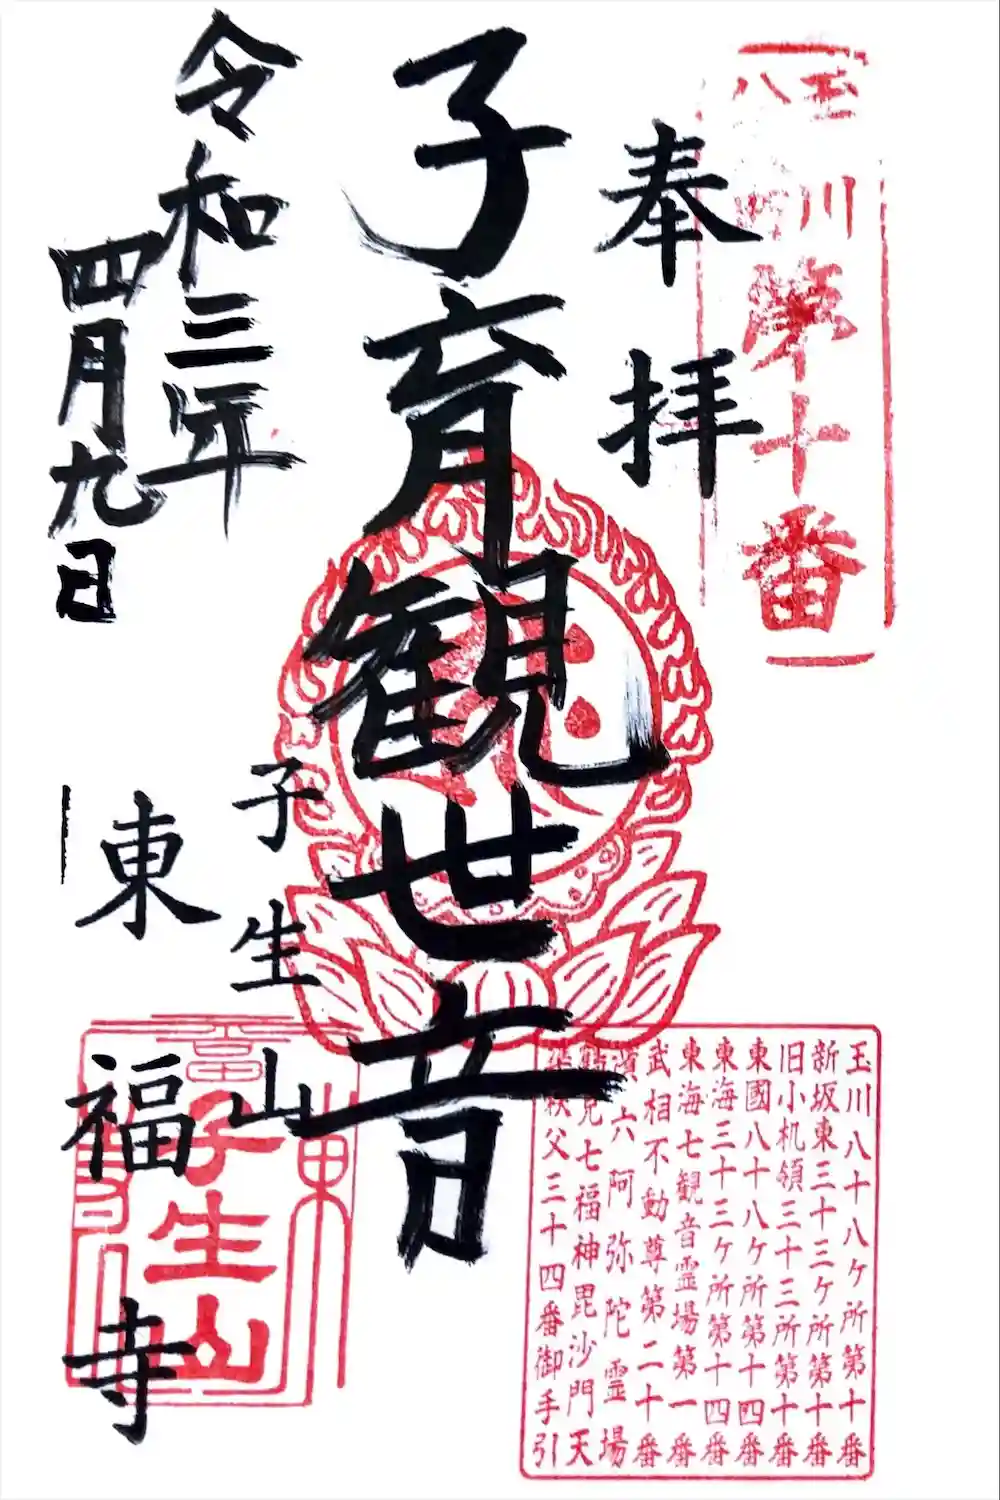 玉川八
第十番
奉拝
子育観世音
令和三年
四月九日
子生山
東福寺
子生山
玉川八十八ヶ所第十番
新坂東三十三ヶ所第十番
旧小机領三十三所第十番
東國八十八ヶ所第十四番
東海三十三ヶ所第十四番
東海七観音霊場第一番
武相不動尊第二十番
六阿弥陀霊場
見七福神毘沙門天
秩父三十四番御手引